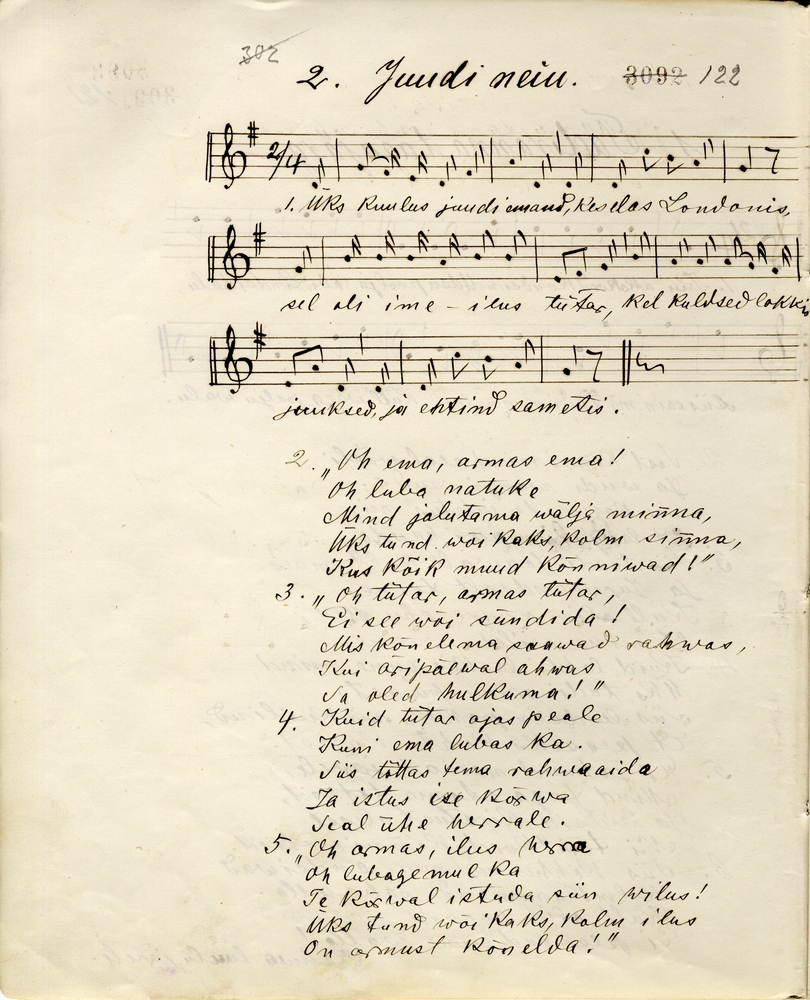 302
2. Juudi neiu. 3092 122
2/4
1. Üks kuulus juudi emand, kes elas Londonis,
sel oli ime - ilus tütar, kel kuldsed lokkis
juuksed, ja ehtind sametis.
2. „Oh ema, armas ema!
Oh luba natuke
Mind jalutama wälja minna,
Üks tund wõi kaks, kolm sinna,
Kus kõik muud kõnniwad!"
3. „Oh tütar, armas tütar,
Ei see wõi sündida!
Mis kõnelema saawad rahwas,
Kui äripäewal ahwas
Sa oled hulkuma!"
4. Kuid tütar ajas peale
Kuni ema lubas ka.
Siis tõttas tema rahwaaida
Ja istus ise kõrwa
Seal ühe herrale.
5. „Oh armas, ilus herra
Oh lubage mul ka
Te kõrwal istuda siin wilus!
Üks tund wõi kaks, kolm ilus
On armust kõnelda!"